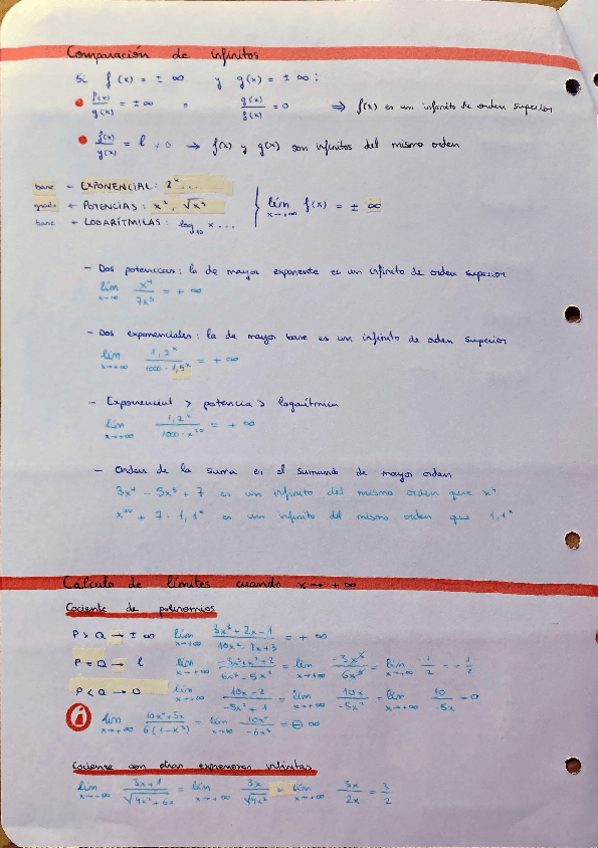 Comparación de infinitos
Si f(x) = ± ∞ y g(x) = ± ∞ :
f(x)/g(x) = ± ∞ o g(x)/f(x) = 0 ⇒ f(x) es un infinito de orden superior
f(x)/g(x) = l ≠ 0 → f(x) y g(x) son infinitos del mismo orden
base ← EXPONENCIAL: 2^x ...
grado ← POTENCIAS: x², √x³
base ← LOGARÍTMICAS: log₁₀ x ...
lim x→+∞ f(x) = ± ∞
- Dos potencias: la de mayor exponente es un infinito de orden superior
lim x→∞ x⁴/7x³ = + ∞
- Dos exponenciales: la de mayor base es un infinito de orden superior
lim x→+∞ 1,2^x/1000 - 1,5^x = + ∞
- Exponencial > potencia > logarítmica
lim x→+∞ 1,2^x/1000 - x²⁰ = + ∞
- Orden de la suma es el sumando de mayor orden
3x⁴ - 5x⁵ + 7 es un infinito del mismo orden que
+ 7 · 1,1^x es un infinito del mismo orden que 1,1^x
Cálculo de límites cuando x → + ∞
Cociente de polinomios
P > Q → ± ∞ lim x→+∞ = + ∞
P = Q → l lim x→+∞ = lim x→+∞ = lim x→+∞ 1/2 = -1/2
P < Q → 0 lim x→+∞ 10x-2/-5x²+1 = lim x→+∞ 10x/-5x² = lim x→+∞ 10/-5x = 0
lim x→+∞ /6(1-x³) = lim x→∞ /-6x³ = - ∞
Cociente con otras expresiones infinitas
lim x→+∞ 3x+1/√4x²+6x = lim x→+∞ 3x/√4x² = lim x→+∞ 3x/2x = 3/2